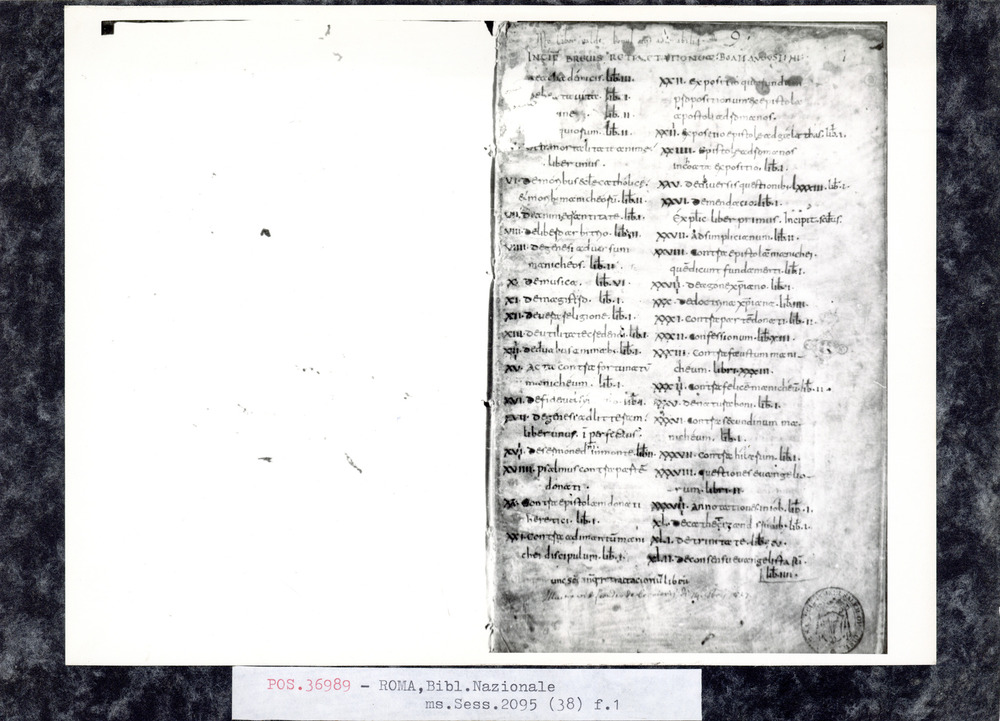 INCIP BREVIS RETRACTATIONUM BEATI AUGUSTINI
achademicis. lib. III.
de beata vita. lib. I.
ordine. lib. II.
quiorum. lib. II.
inmortalitate anime
liber unus.
VI. De moribus eccle catholice.
et morib; manicheoru. lib. II.
VII. De anime quantitate. lib. I.
VIII. De libero arbitrio. lib. III.
VIIII. De genesi adversum
manicheos. lib. II.
X. De musica. lib. VI.
XI. De magistro. lib. I.
XII. De vera religione. lib. I.
XIII. De utilitate credendi. lib. I.
XIIII. De duabus animabus. lib. I.
XV. Acta contra fortunatu
manicheum. lib. I.
XVI. De fide et si lib. I.
XVII. De genesi ad litteram.
liber unus. i perfectus.
XVIII. De sermone dni in monte. lib. II.
XVIIII. psalmus contra parte
donati.
XX. Contra epistolam donati
heretici. lib. I.
XXI. Contra adimantum mani
chei discipulum. lib. I.
XXII. expositio quarundam
ppositionum ex epistola
apostoli ad romanos.
XXIII. expositio epistole ad galathas. lib. I.
XXIIII. Epistole ad romanos
incoata expositio. lib. I.
XXV. De diversis questionib; LXXXIII. lib. I.
XXVI. De mendacio. lib. I.
Explic liber primus. Incipit scds.
XXVII. Ad simplicianum. lib. II.
XXVIII. Contra epistola manichei.
que dicunt fundamenti. lib. I.
XXVIIII. De agone xpiano. lib. I.
XXX. De doctrina xpiana. lib. IIII.
XXXI. Contra parte donati. lib. II.
XXXII. Confessionum. lib. XIII.
XXXIII. Contra faustum mani
cheum. libri XXXIII.
XXXIIII. Contra felice manicheu. lib. II.
XXXV. De natura boni. lib. I.
XXXVI. Contra secundinum ma
nicheum. lib. I.
XXXVII. Contra hilarum. lib. I.
XXXVIII. Questiones evangelio
rum. libri. II.
XXXVIIII. Annotationes in iob. lib. I.
XL. De cathezizandis rudib. lib. I.
XLI. De trinitate. lib. XV.
XLII. De consensu evangelistaru.
lib. IIII.
POS.36989 - ROMA,Bibl.Nazionale
ms.Sess.2095 (38) f.1